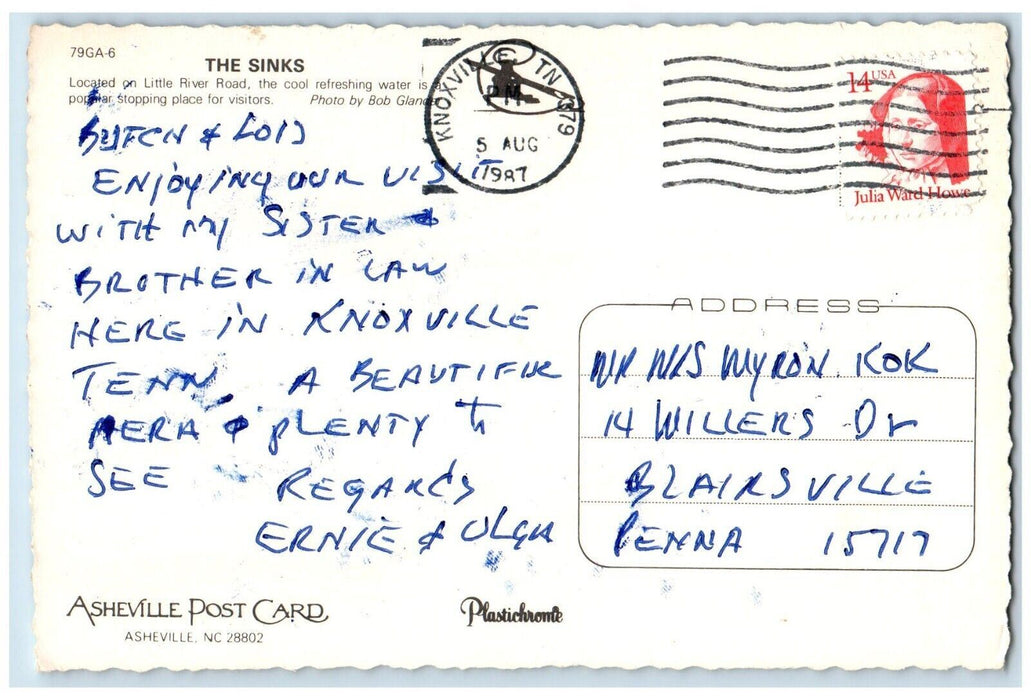 79GA-6
THE SINKS
Located on Little River Road, the cool refreshing water is a
popular stopping place for visitors. Photo by Bob Glander
KNOXVILLE, TN 379
PM
5 AUG
1987
14 USA
Julia Ward Howe
& LOIS
ENJOYING OUR VISIT
WITH MY SISTER &
BROTHER IN LAW
HERE IN KNOXVILLE
TENN, A BEAUTIFUL
AERA & PLENTY to
SEE REGARDS
ERNIE & OLGA
ADDRESS
MR MRS MYRON KOK
14 WILLERS Dr
BLAIRSVILLE
PENNA 15717
ASHEVILLE POST CARD
ASHEVILLE, NC 28802
Plastichrome